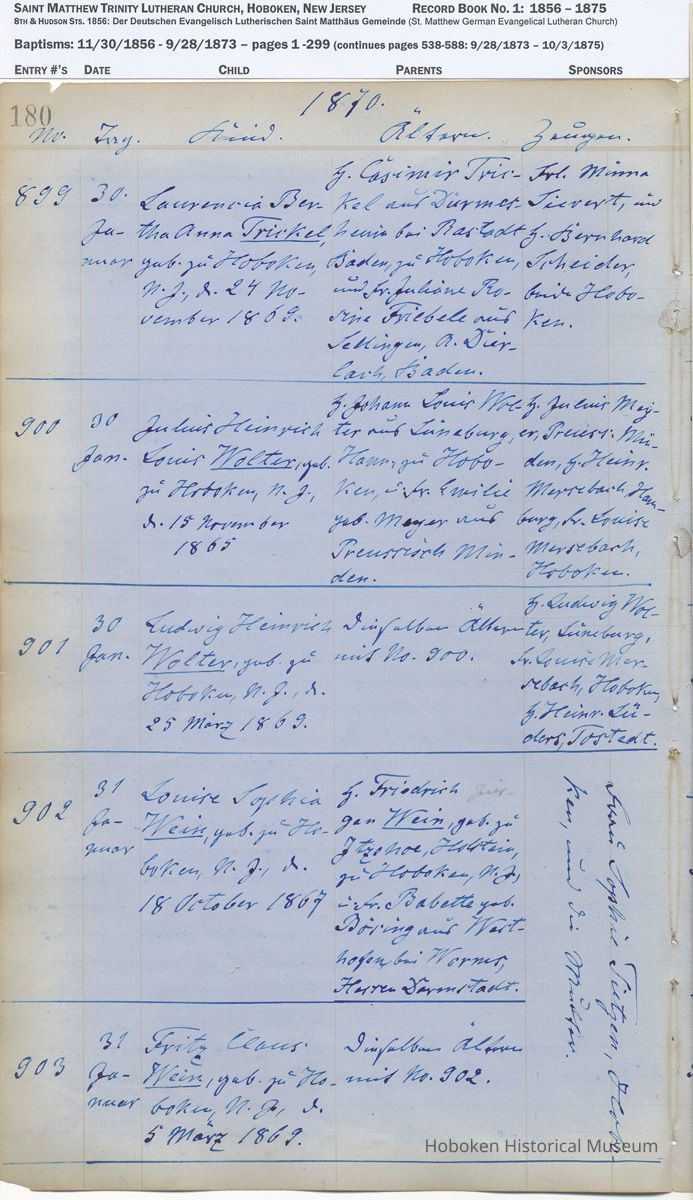 SAINT MATTHEW TRINITY LUTHERAN CHURCH, HOBOKEN, NEW JERSEY RECORD BOOK NO. 1: 1856 – 1875
8TH & HUDSON STS. 1856: Der Deutschen Evangelisch Lutherischen Saint Matthäus Gemeinde (St. Matthew German Evangelical Lutheran Church)
Baptisms: 11/30/1856 - 9/28/1873 – pages 1 -299 (continues pages 538-588: 9/28/1873 – 10/3/1875)
ENTRY #'S DATE CHILD PARENTS SPONSORS
180
1870.
No. Tag. Kind. Ältern. Zeugen.
899
30.
Ja-
nuar
Laurencia Ber-
tha Anna Trickel,
geb. zu Hoboken,
N. J., d. 24 No-
vember 1869.
H. Casimir Tric-
kel aus Durmes-
heim bei Rastadt
Baden, zu Hoboken,
und Fr. Juliane Ro-
sine Friebele aus
Sellingen, A. Dur-
lach, Baden.
Frl. Minna
Sievert, und
H. Bernhard
Scheider,
beide Hobo-
ken.
900
30
Jan.
Julius Heinrich
Louis Wolter, geb.
zu Hoboken, N. J.,
d. 15 November
1865
H. Johann Louis Wol-
ter aus Lüneburg,
Hann., zu Hobo-
ken, u. Fr. Emilie
geb. Meyer aus
Preussisch Min-
den.
H. Julius Mey-
er, Preuss. Min-
den, H. Heinr.
Mersebach, Ham-
burg, Fr. Louise
Mersebach,
Hoboken.
901
30
Jan.
Ludwig Heinrich
Wolter, geb. zu
Hoboken, N. J., d.
25 März 1869.
Dieselben Ältern
mit No. 900.
H. Ludwig Wol-
ter, Lüneburg,
Fr. Louise Mer-
sebach, Hoboken,
H. Heinr. Lü-
ders, Tostedt.
902
31
Ja-
nuar
Louise Sophia
Wein, geb. zu Ho-
boken, N. J., d.
18 October 1867
H. Friedrich Jür-
gen Wein, geb. zu
Itzohoe, Holstein,
zu Hoboken, N. J.,
u. Fr. Babette geb.
Bösing aus West-
hofen, bei Worms,
Hessen Darmstadt.
Frau Sophie Tietgen, Hobo-
ken, und die Mutter.
903
31
Ja-
nuar
Fritz Claus
Wein, geb. zu Ho-
boken, N. J., d.
5 März 1869.
Dieselben Ältern
mit No. 902.
Hoboken Historical Museum